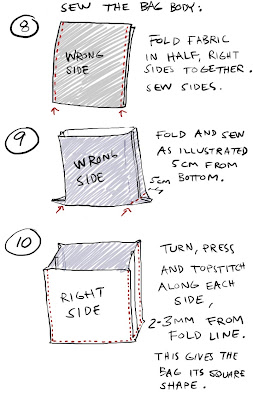 SEW THE BAG BODY:
8
WRONG
SIDE
FOLD FABRIC
IN HALF, RIGHT
SIDES TOGETHER.
SEW SIDES.
9
WRONG
SIDE
5CM
FOLD AND SEW
AS ILLUSTRATED
5CM FROM
BOTTOM.
10
RIGHT
SIDE
TURN, PRESS
AND TOPSTITCH
ALONG EACH
SIDE,
2-3MM FROM
FOLD LINE.
THIS GIVES THE
BAG ITS SQUARE
SHAPE.